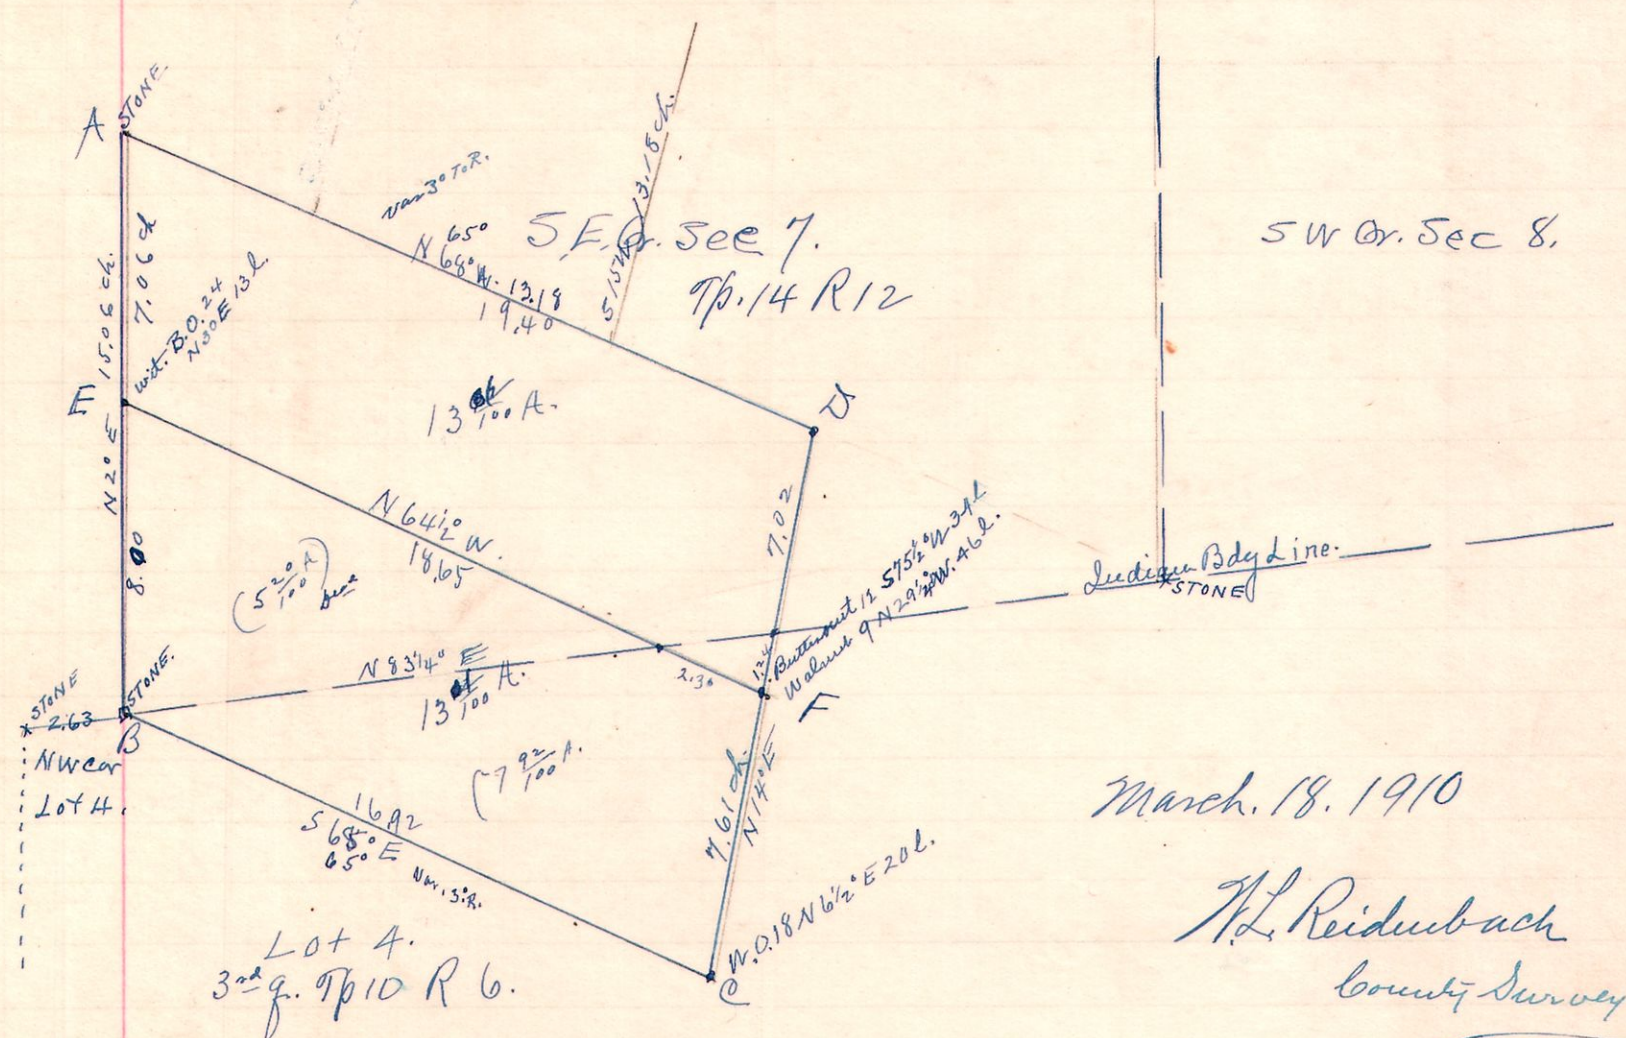 A STONE
var 3° To R.
N 65°
N 68° W. 13.18
19.40
S 15 W 13.18 ch.
S E. Qr. Sec 7.
Tp. 14 R 12
S W Qr. Sec 8.
N 2° E 15.06 ch.
7.06 ch
wit. B.O. 24
N 30 E 13 l.
E
13 /100 A.
D
N 64½° W.
18.65
7.02
8.00
(5 20/100 A)
Butternut 12 S 75½° W 34 l
Walnut 9 N 29½° W. 46 l.
Indian Bdy Line.
STONE
N 83¼° E
13 /100 A.
2.30
1.24
F
STONE
2.63
STONE.
B
NW cor
Lot 4.
(7 92/100 A.
7.61 ch.
N 14° E
16.92
S 68° E
65°
Var. 3° R.
March. 18. 1910
W. O. 18 N 6½° E 20 l.
C
Lot 4.
3rd q. Tp 10 R 6.
W.L. Reidenbach
County Survey